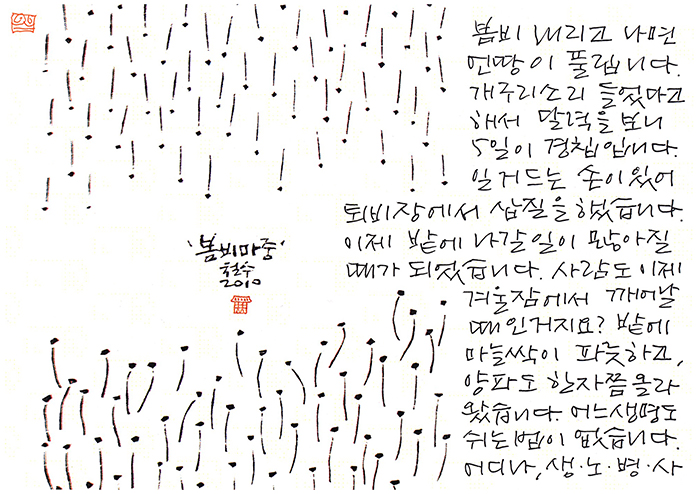 봄비 내리고 나면
언땅이 풀립니다.
개구리소리 들었다고
해서 달력을 보니
5일이 경칩입니다.
일거드는 손이 있어
퇴비장에서 삽질을 했습니다.
이제 밭에 나갈일이 많아질
때가 되었습니다. 사람도 이제
겨울잠에서 깨어날
때인거지요? 밭에
마늘싹이 파릇하고,
양파도 한자쯤 올라
왔습니다. 어느생명도
쉬는법이 없습니다.
어디나, 생·노·병·사
'봄비마중'
철수
2010